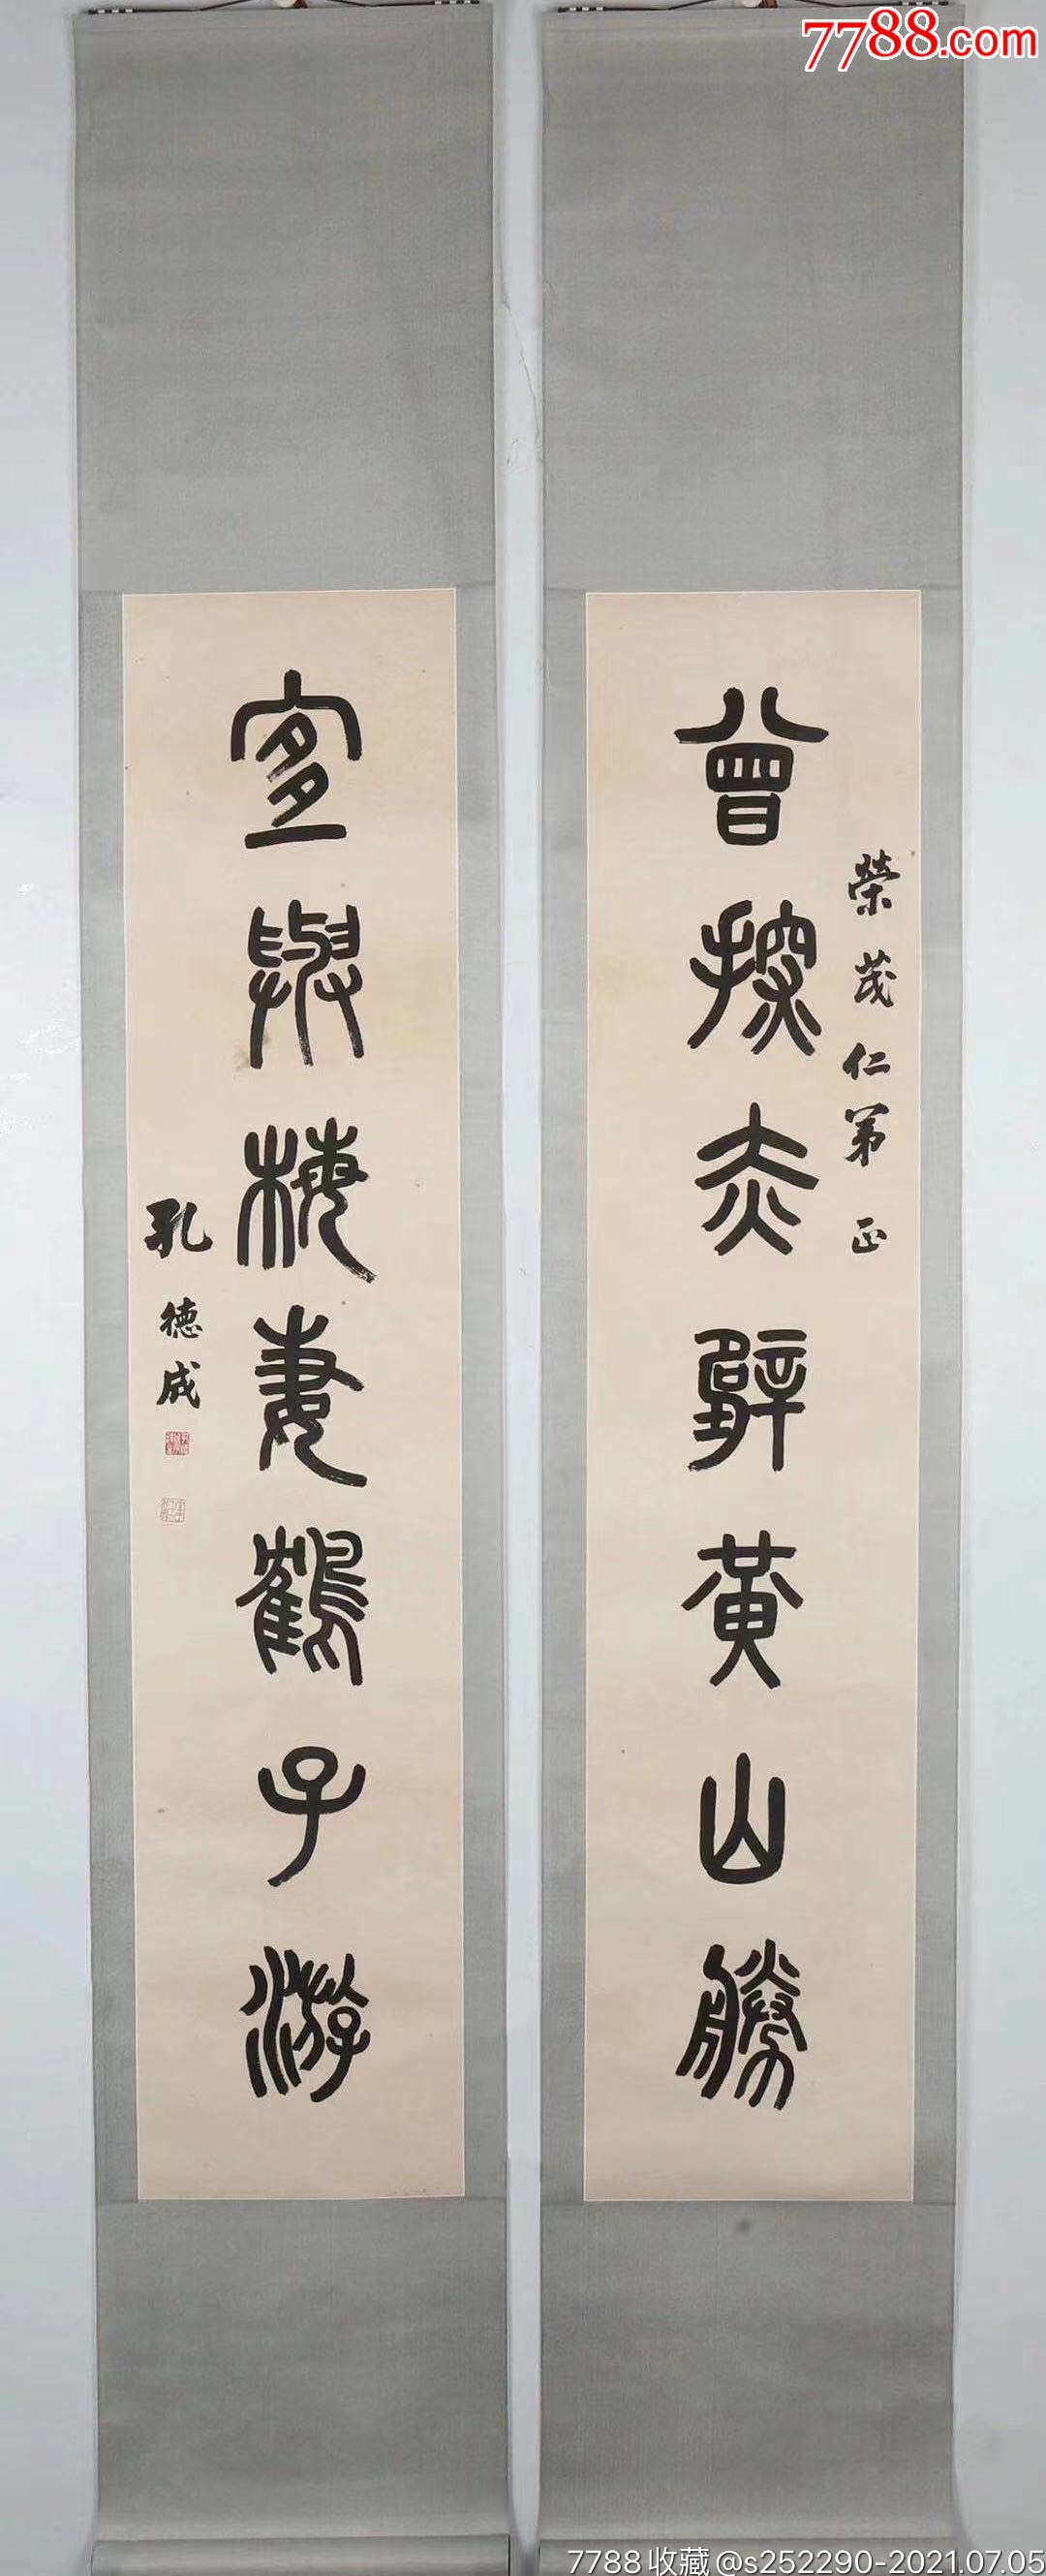 7788.com
曾探赤壁黄山勝
榮茂仁弟 正
宜與梅妻鶴子游
孔德成
7788收藏@s252290-2021.07.05